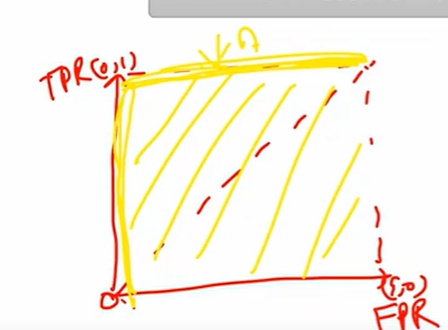 TPR(0,1)
0
(1,0)
FPR